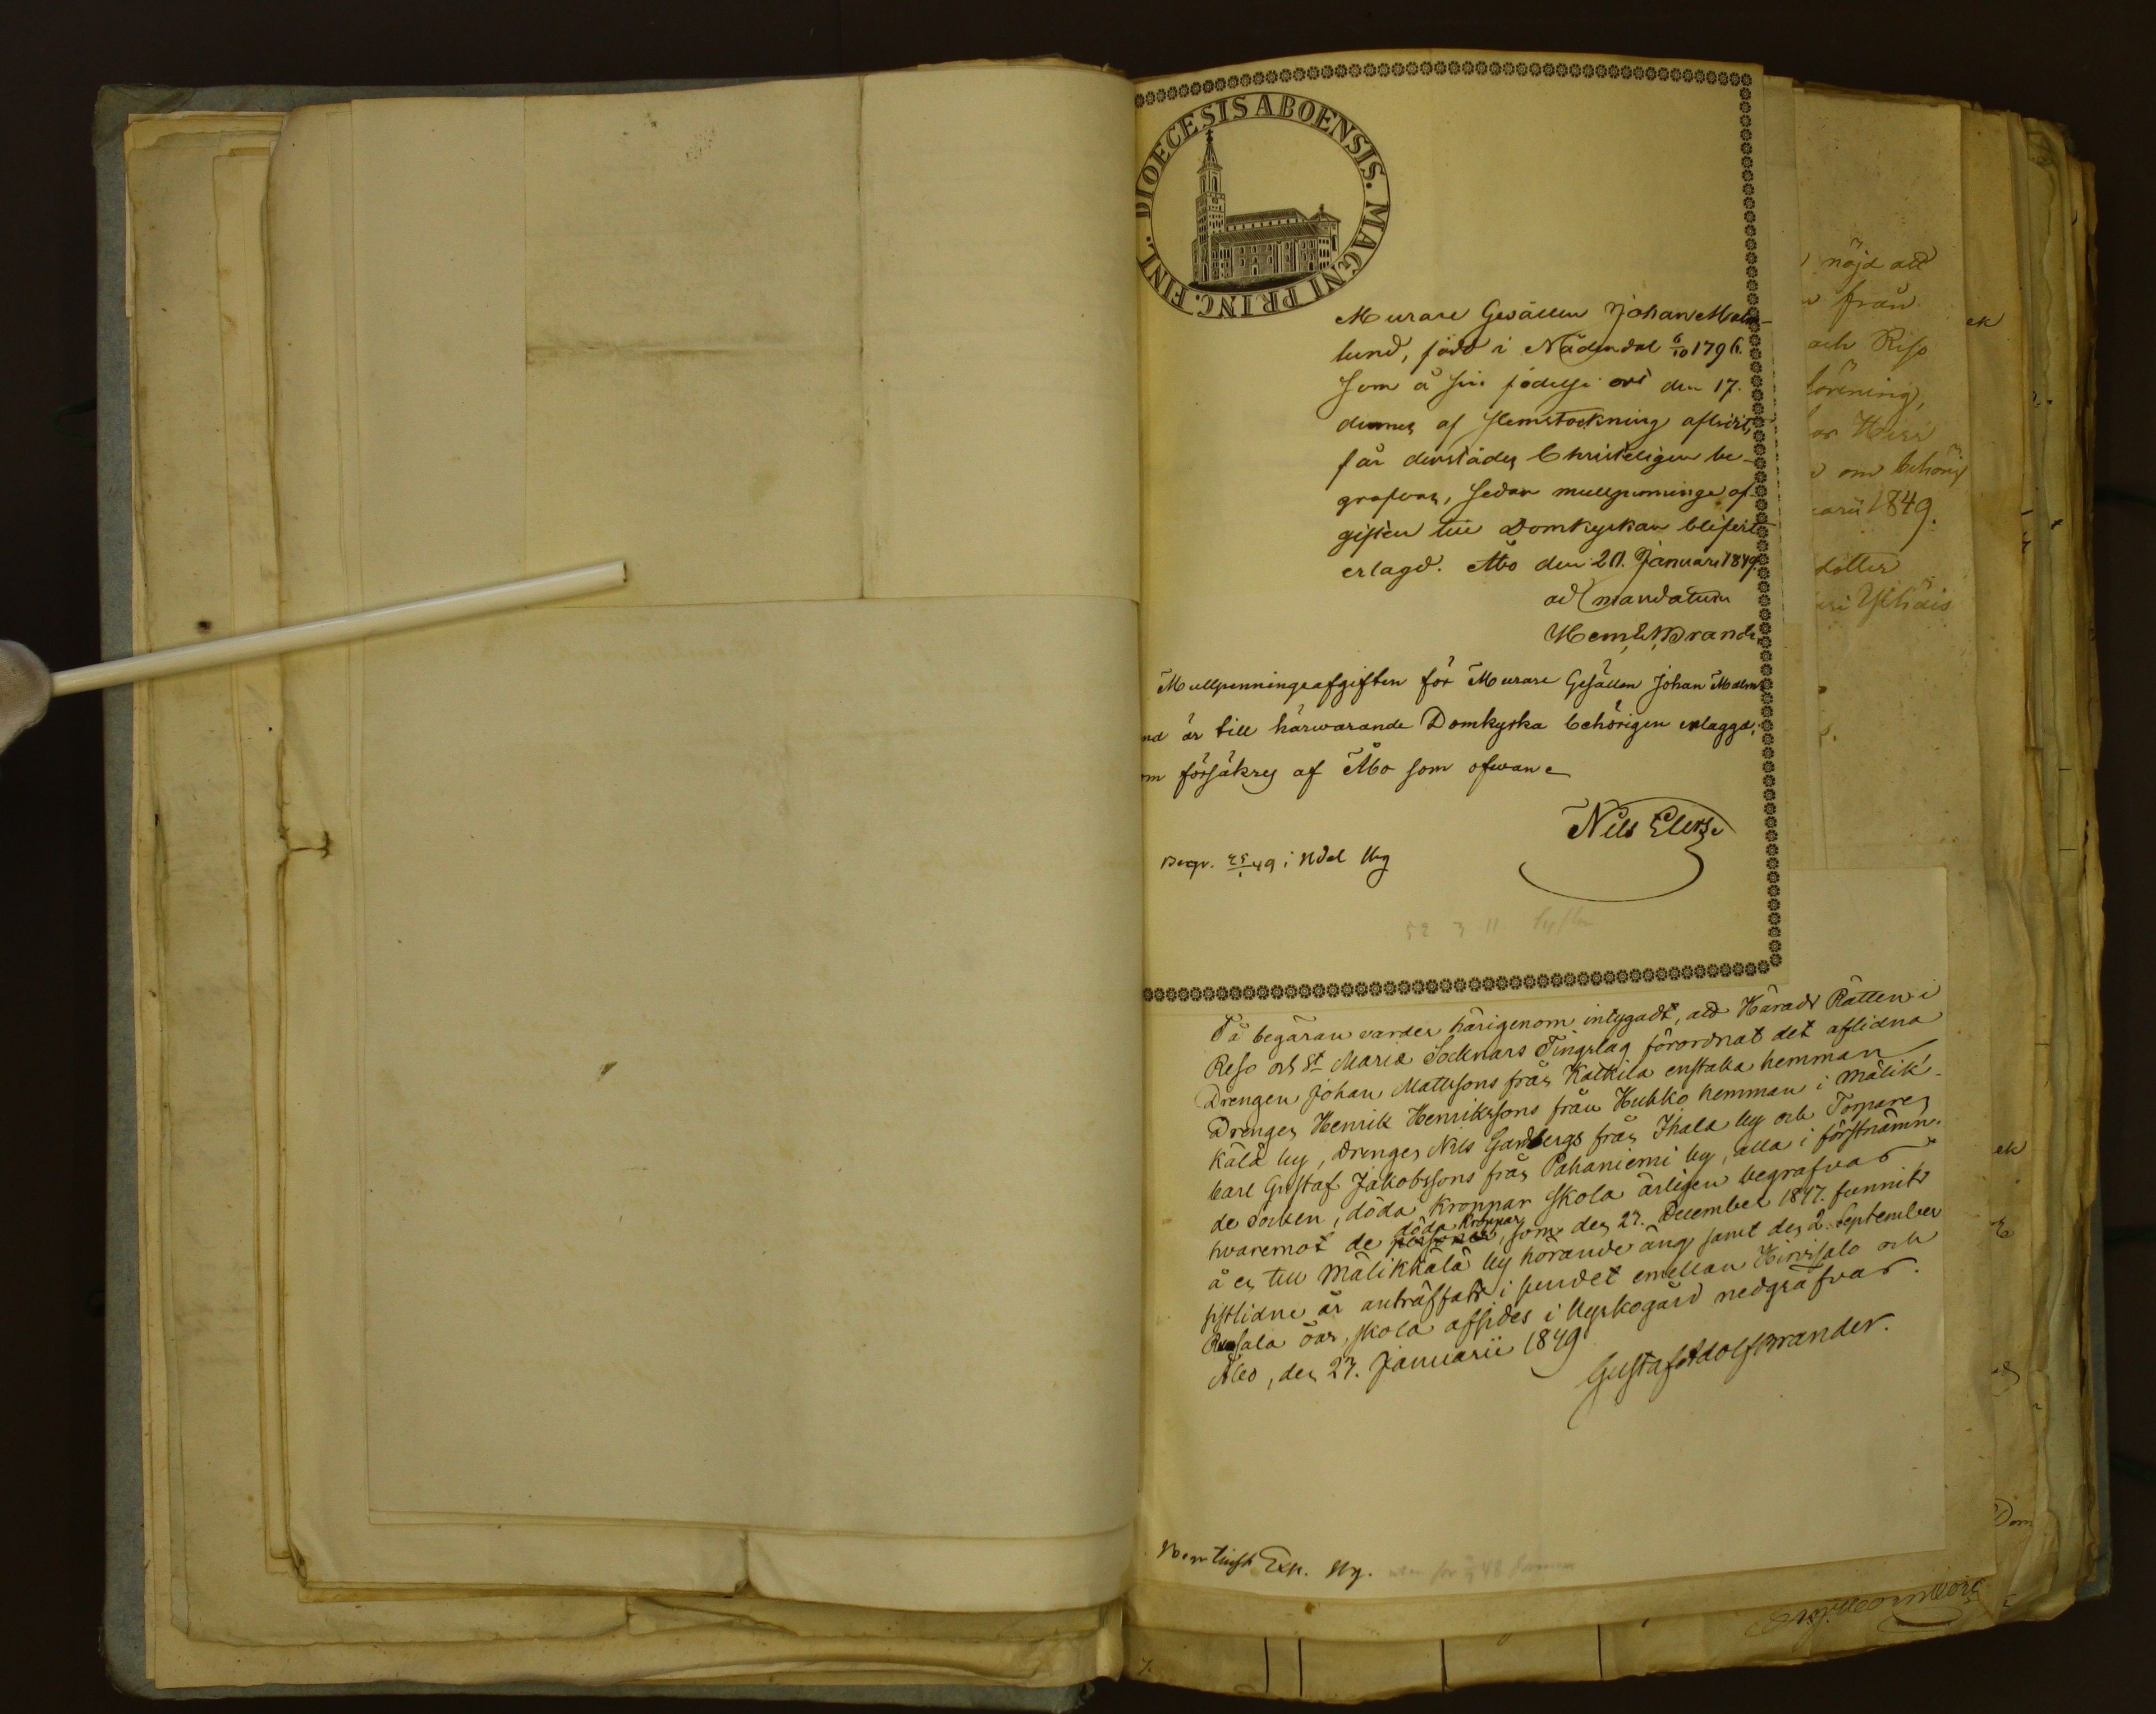 DIOECESIS ABOENSIS. MAGNI PRINC. FINL.
Murare Gesällen Johan Malm-
lund, född i Nådendal 6/10 1796.
Som å sin födelse ort den 17.
dennes af Slemstockning aflidit,
får derstädes Christeligen be-
grafvas, sedan mullpennings af-
giften till Domkyrkan blifvit
erlagd. Åbo den 20. Januari 1849.
ad mandatum
Mullpenningsafgiften för Murare Gesällen Johan Malm-
nd är till härwarande Domkyrka behörigen erlaggd,
om försäkrs af Åbo som ofwan
Nils
Begr. 25/1 49 i Ndal
På begäran varder härigenom intygadt, att Härads Rätten i
Reso och St Marie Socknars Tingslag förordnat det aflidna
Drengen Johan Mattssons från Kaitkila enstaka hemman
Drengen Henrik Henrikssons från Huhko hemman i Mälik-
kälä by, Drengen Nils Gardbergs från Ihala by och Torparen
Carl Gustaf Jakobssons från Pahaniemi by, alla i förstnämn-
de Socken, döda kroppar skola ärligen begrafvas
hvaremot de döda kroppar, som den 27. December 1847. funnits
å en till Mälikkälä by hörande äng samt den 2. September
sistlidne år anträffats i sundet emellan Hirvisalo och
Runsala öar, skola afsides i kyrkogård nedgräfvas.
Åbo, den 27. Januarii 1849
Gustaf Adolf Brander.
nöjd att
från
och Reso
förening,
om behörig
arii 1849.
dotter
Dom